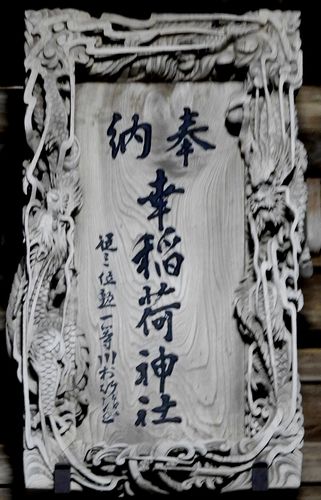 奉納
幸稲荷神社
従三位勲一等川村竹治